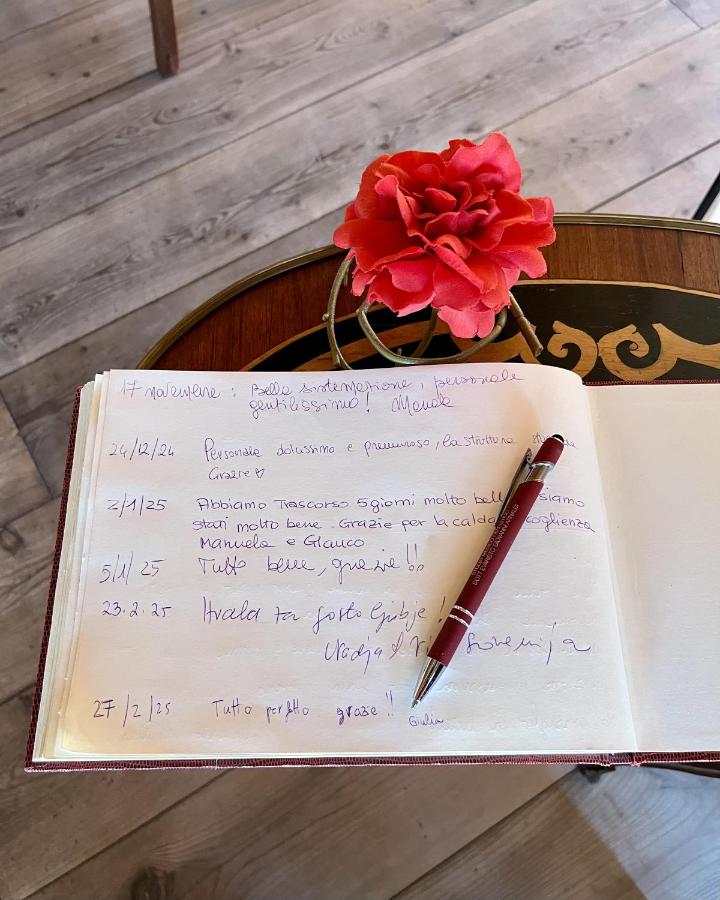 17 novembre : Bella sistemazione, personale
gentilissimo!
24/12/24 Personale dolcissimo e premuroso, la struttura
Grazie ♡
2/1/25 Abbiamo Trascorso 5 giorni molto siamo
stati molto bene. Grazie per la
Manuela e Glauco
5/1/25 Tutto bene, grazie!!
23.2.25 Hvala za gostoljubje!
Nadja Slovenija
27/2/25 Tutto perfetto grazie!!
Giulia